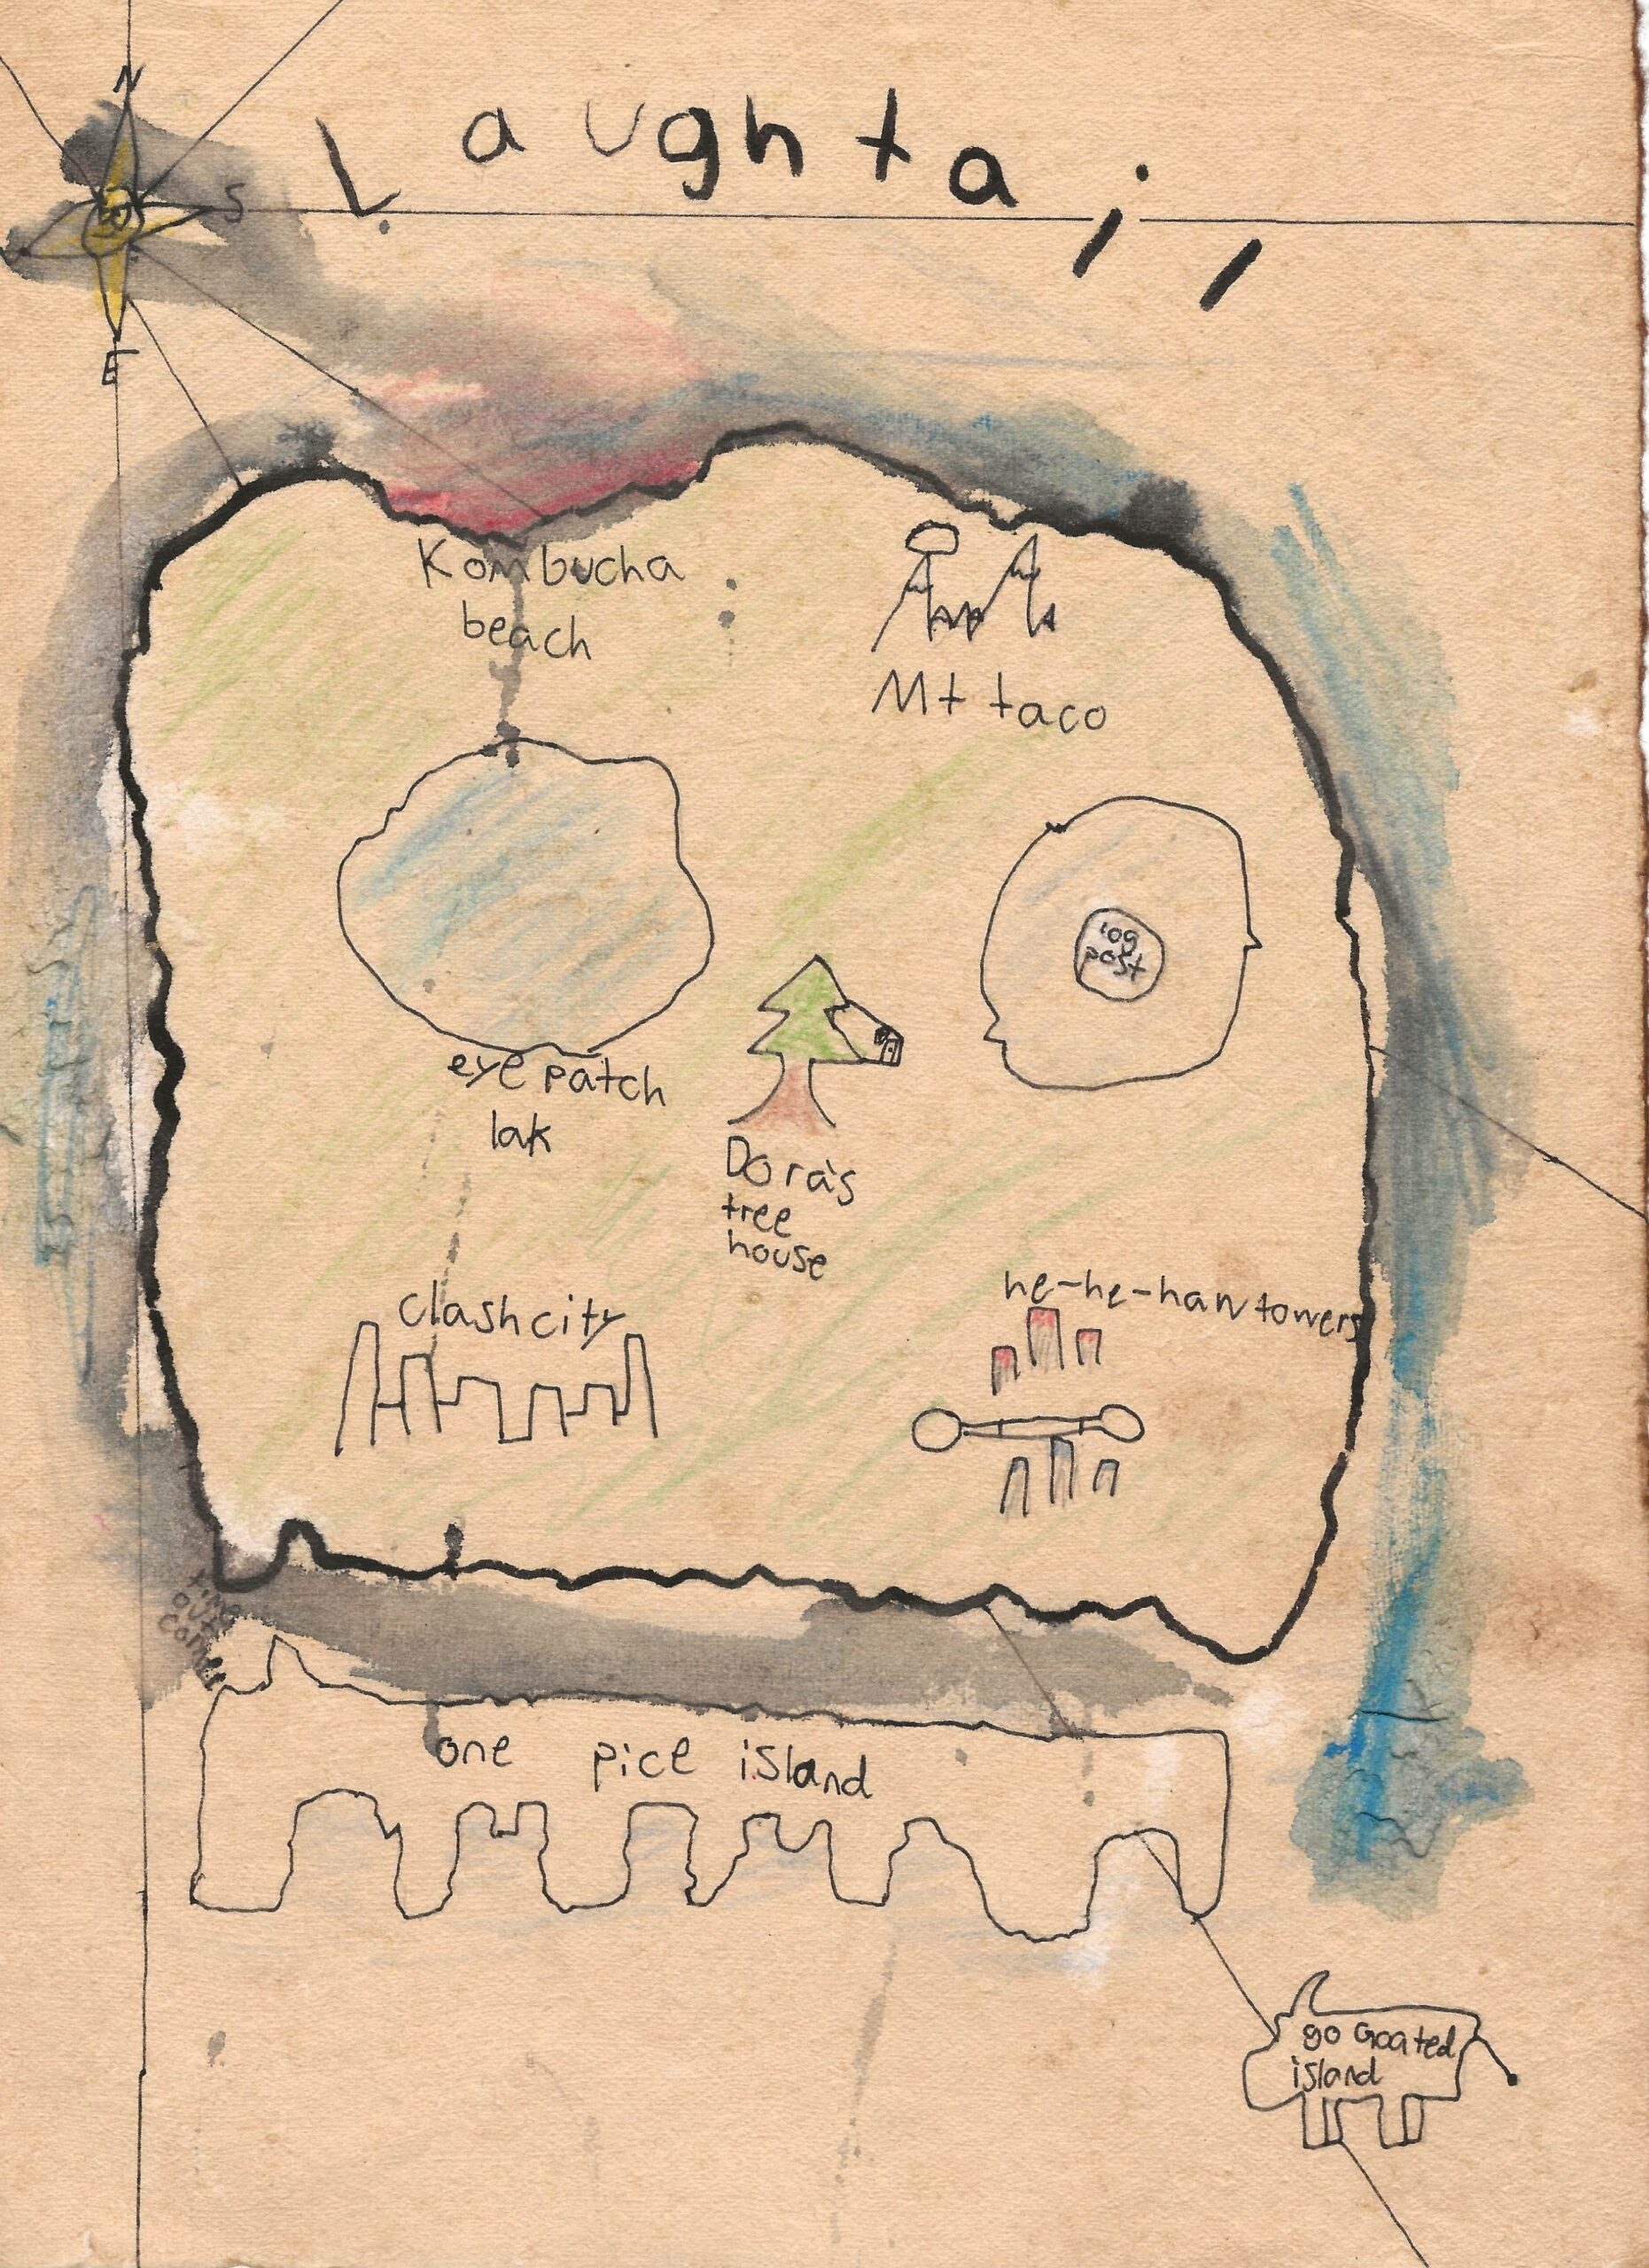 N
S
E
Laughtail
Kombucha
beach
Mt taco
log
post
eye patch
lak
Dora's
tree
house
clash city
he-he-haw towers
time
out
corner
one pice island
go Goated
island